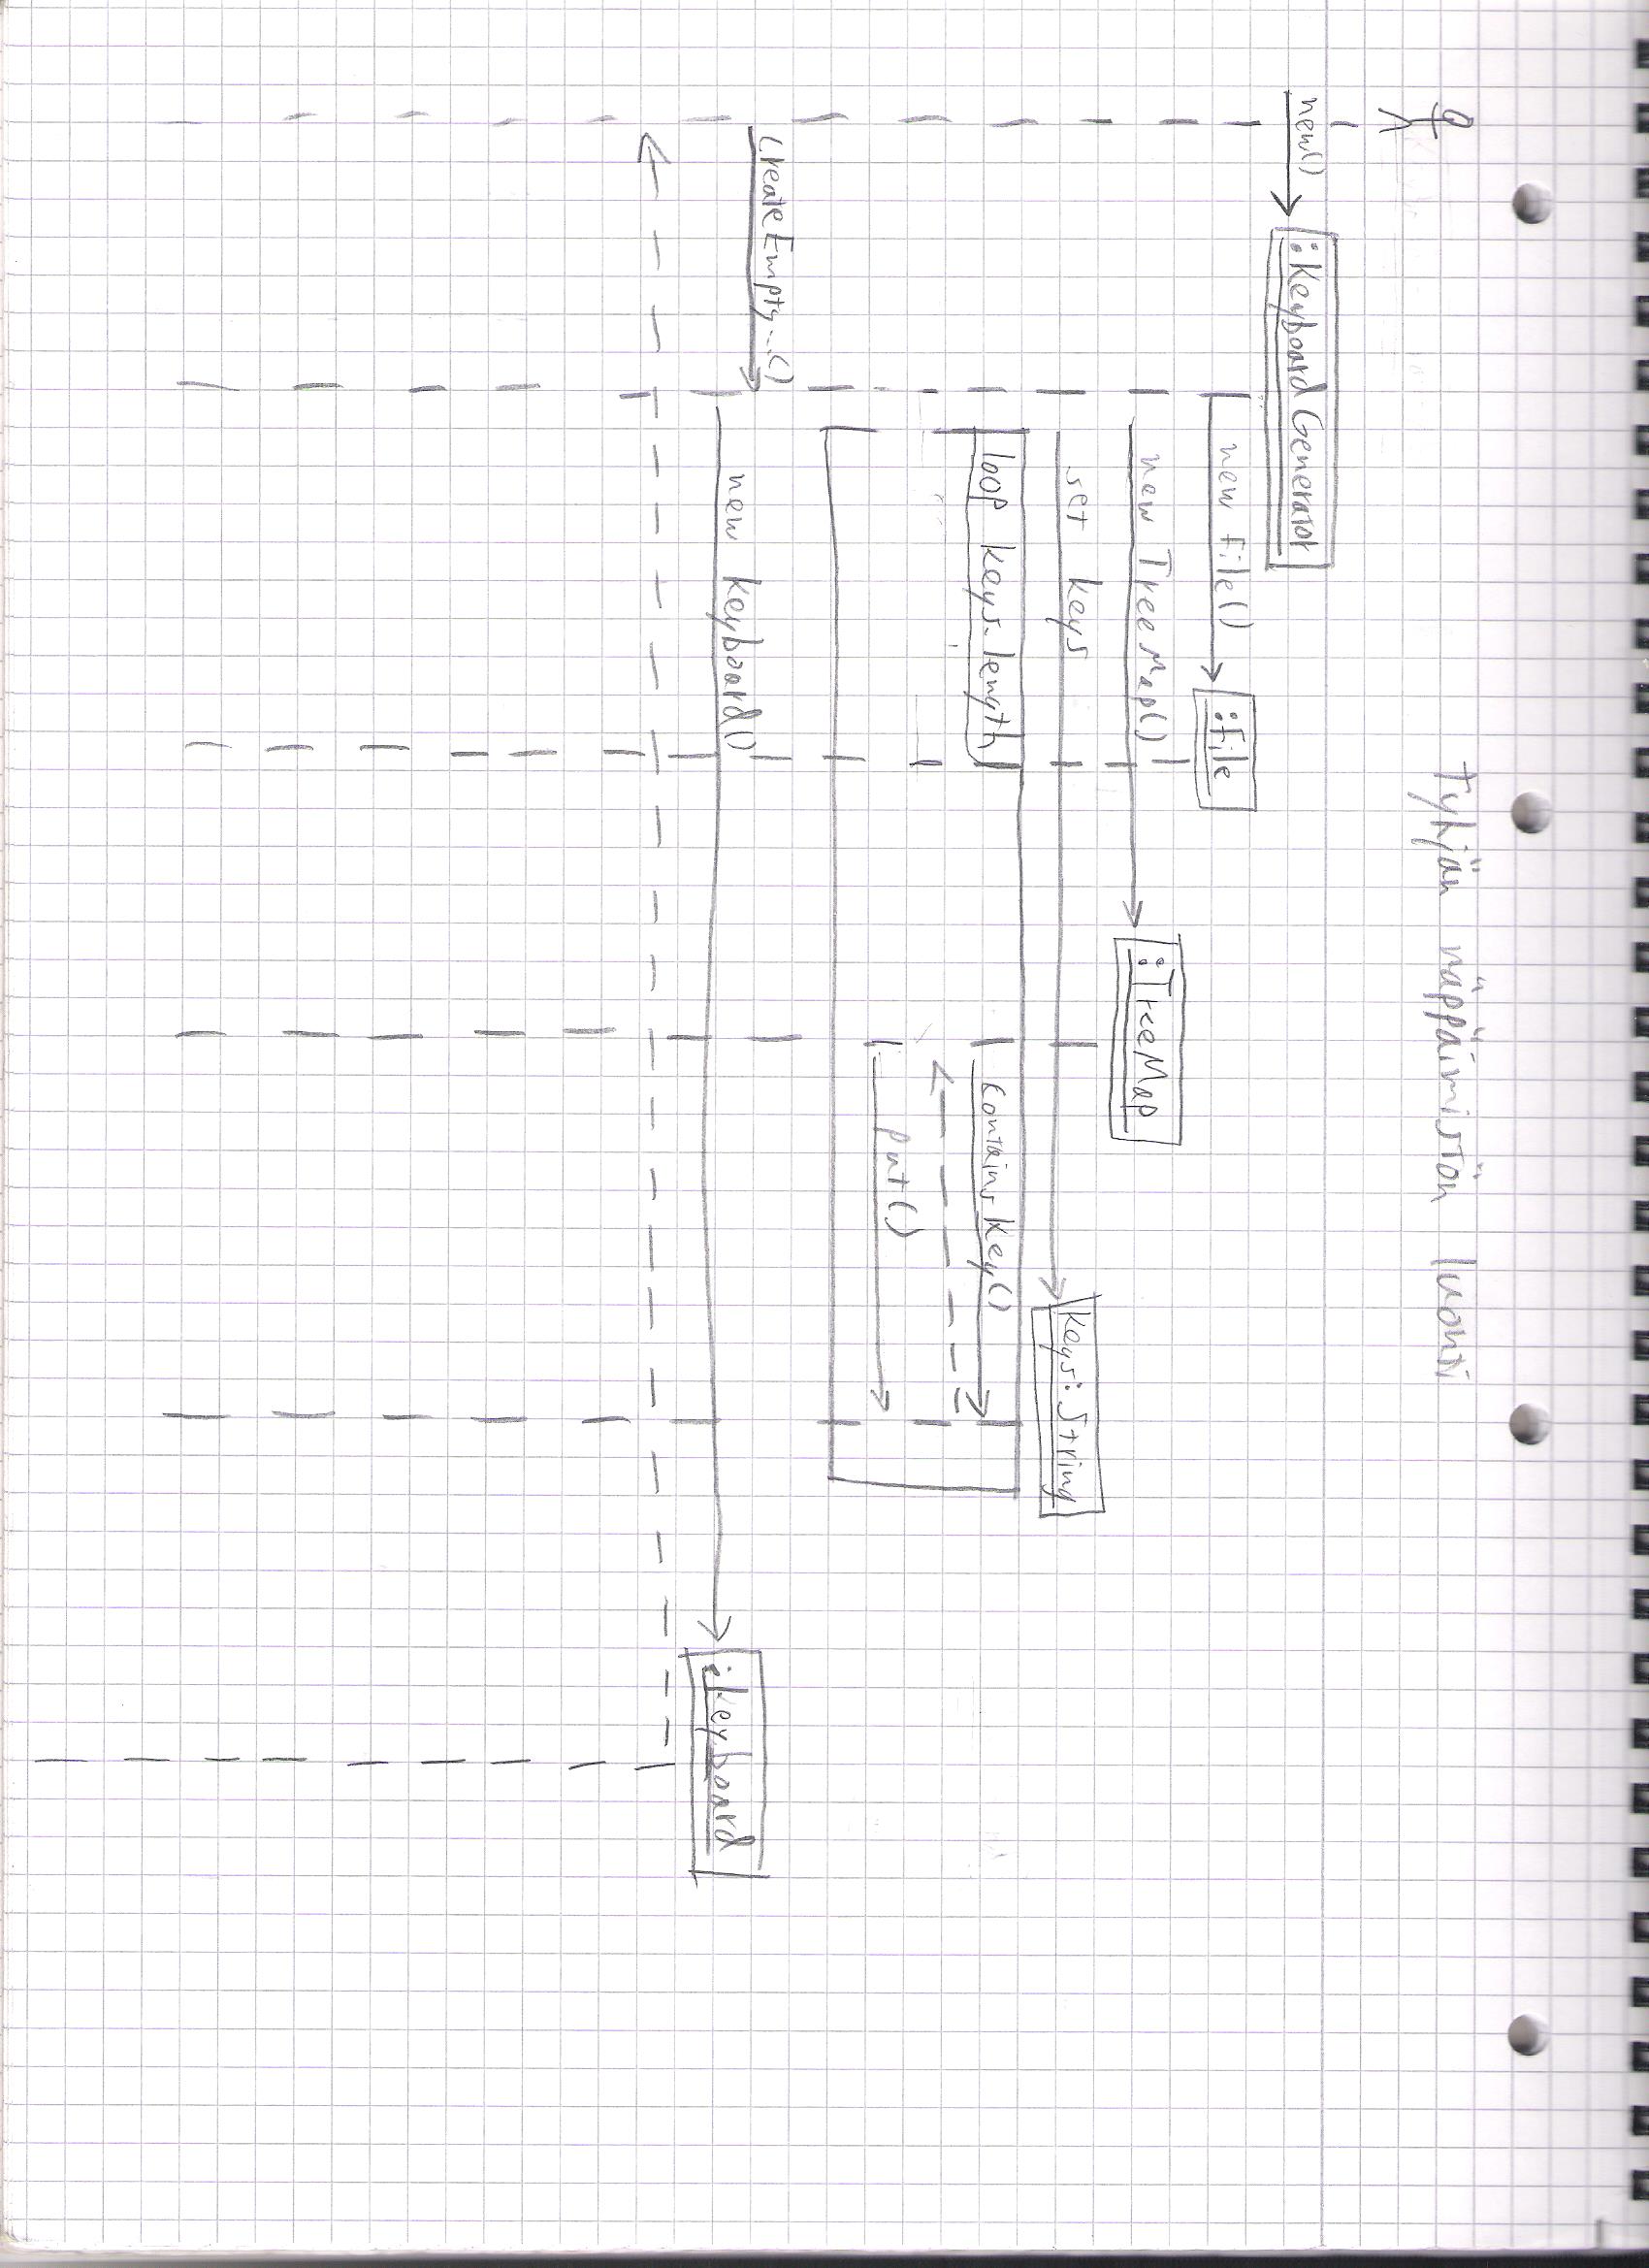 Tyhjän näppäimistön luonti
new()
:KeyboardGenerator
new File()
:File
new TreeMap()
:TreeMap
set keys
keys:String
loop keys.length
containsKey()
put()
createEmpty...()
new Keyboard()
:Keyboard